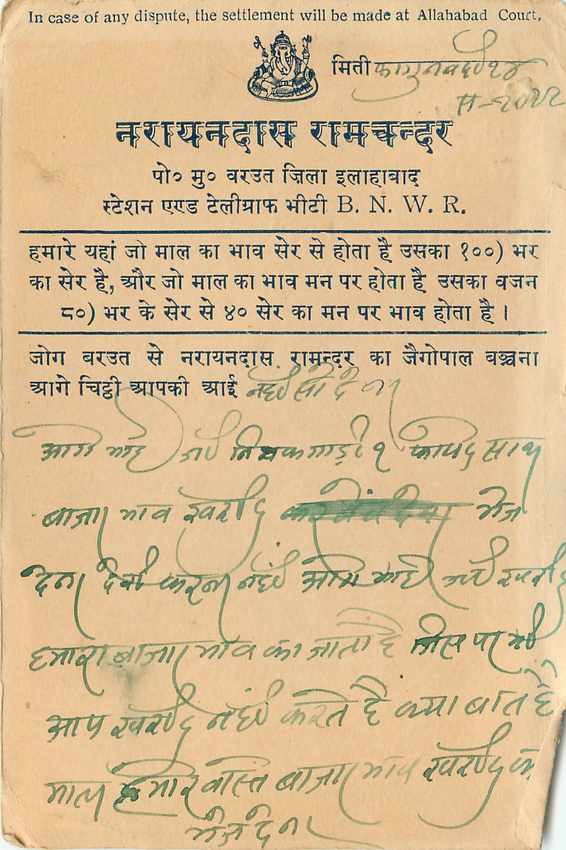 In case of any dispute, the settlement will be made at Allahabad Court.
मिती फागुन वदी १४
नरायनदास रामचन्दर
पो० मु० वरउत ज़िला इलाहाबाद
स्टेशन एण्ड टेलीग्राफ भीटी B. N. W. R.
हमारे यहां जो माल का भाव सेर से होता है उसका १००) भर
का सेर है, और जो माल का भाव मन पर होता है उसका वजन
८०) भर के सेर से ४० सेर का मन पर भाव होता है ।
जोग बरउत से नरायनदास रामन्दर का जैगोपाल बञ्चना
आगे चिट्ठी आपकी आई नहीं सो देना
आगे भाई जी गाड़ी १ साथ
बाजार भाव खरीद भेज
देना देरी करना नहीं आगे भाई जी खरीद
हमारा बाजार भाव का जाता है जिस पर भी
आप खरीद नहीं करते है क्या बात है
माल हमारे वास्ते बाजार भाव खरीद कर
भेज देना